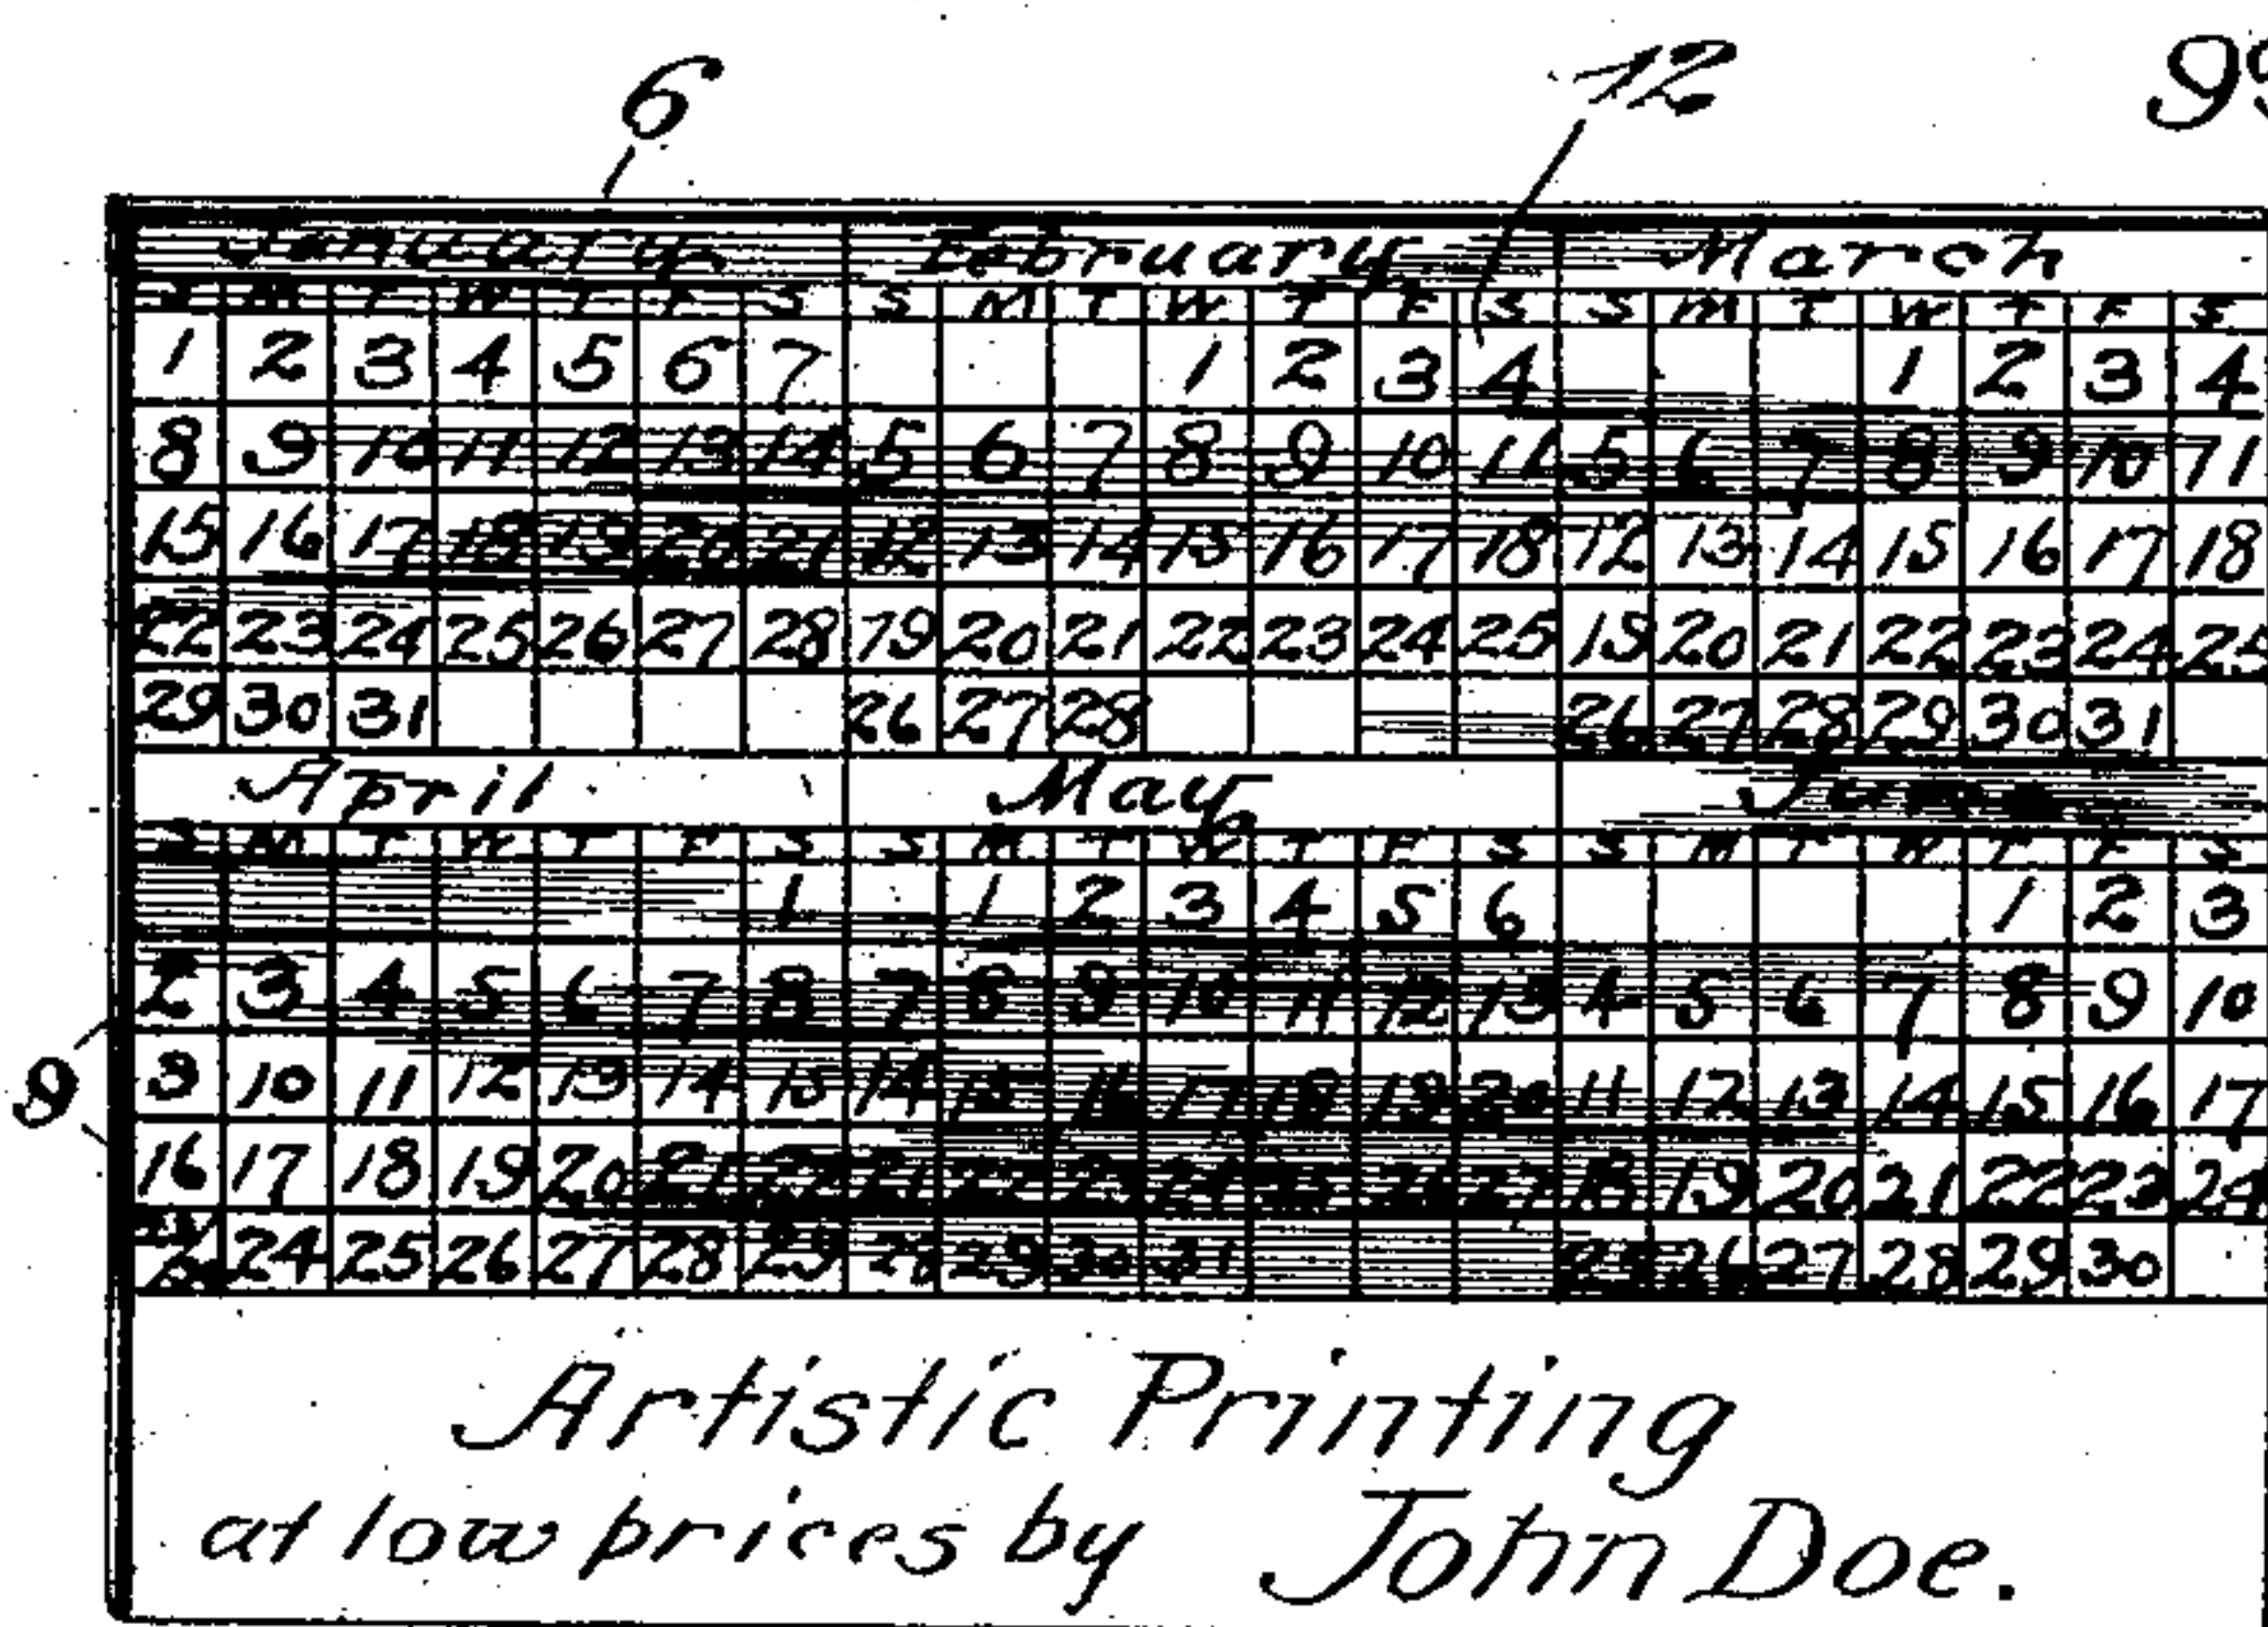 6 12 99
January February March
S M T W T F S S M T W T F S S M T W T F S
1 2 3 4 5 6 7 1 2 3 4 1 2 3 4
8 9 10 11 12 13 14 5 6 7 8 9 10 11 5 6 7 8 9 10 11
15 16 17 18 19 20 21 12 13 14 15 16 17 18 12 13 14 15 16 17 18
22 23 24 25 26 27 28 19 20 21 22 23 24 25 19 20 21 22 23 24 25
29 30 31 26 27 28 26 27 28 29 30 31
April May June
S M T W T F S S M T W T F S S M T W T F S
1 1 2 3 4 5 6 1 2 3
2 3 4 5 6 7 8 7 8 9 10 11 12 13 4 5 6 7 8 9 10
9
9 10 11 12 13 14 15 14 15 16 17 18 19 20 11 12 13 14 15 16 17
16 17 18 19 20 21 22 21 22 23 24 25 26 27 18 19 20 21 22 23 24
24 25 26 27 28 29 28 29 30 31 25 26 27 28 29 30
Artistic Printing
at low prices by John Doe.